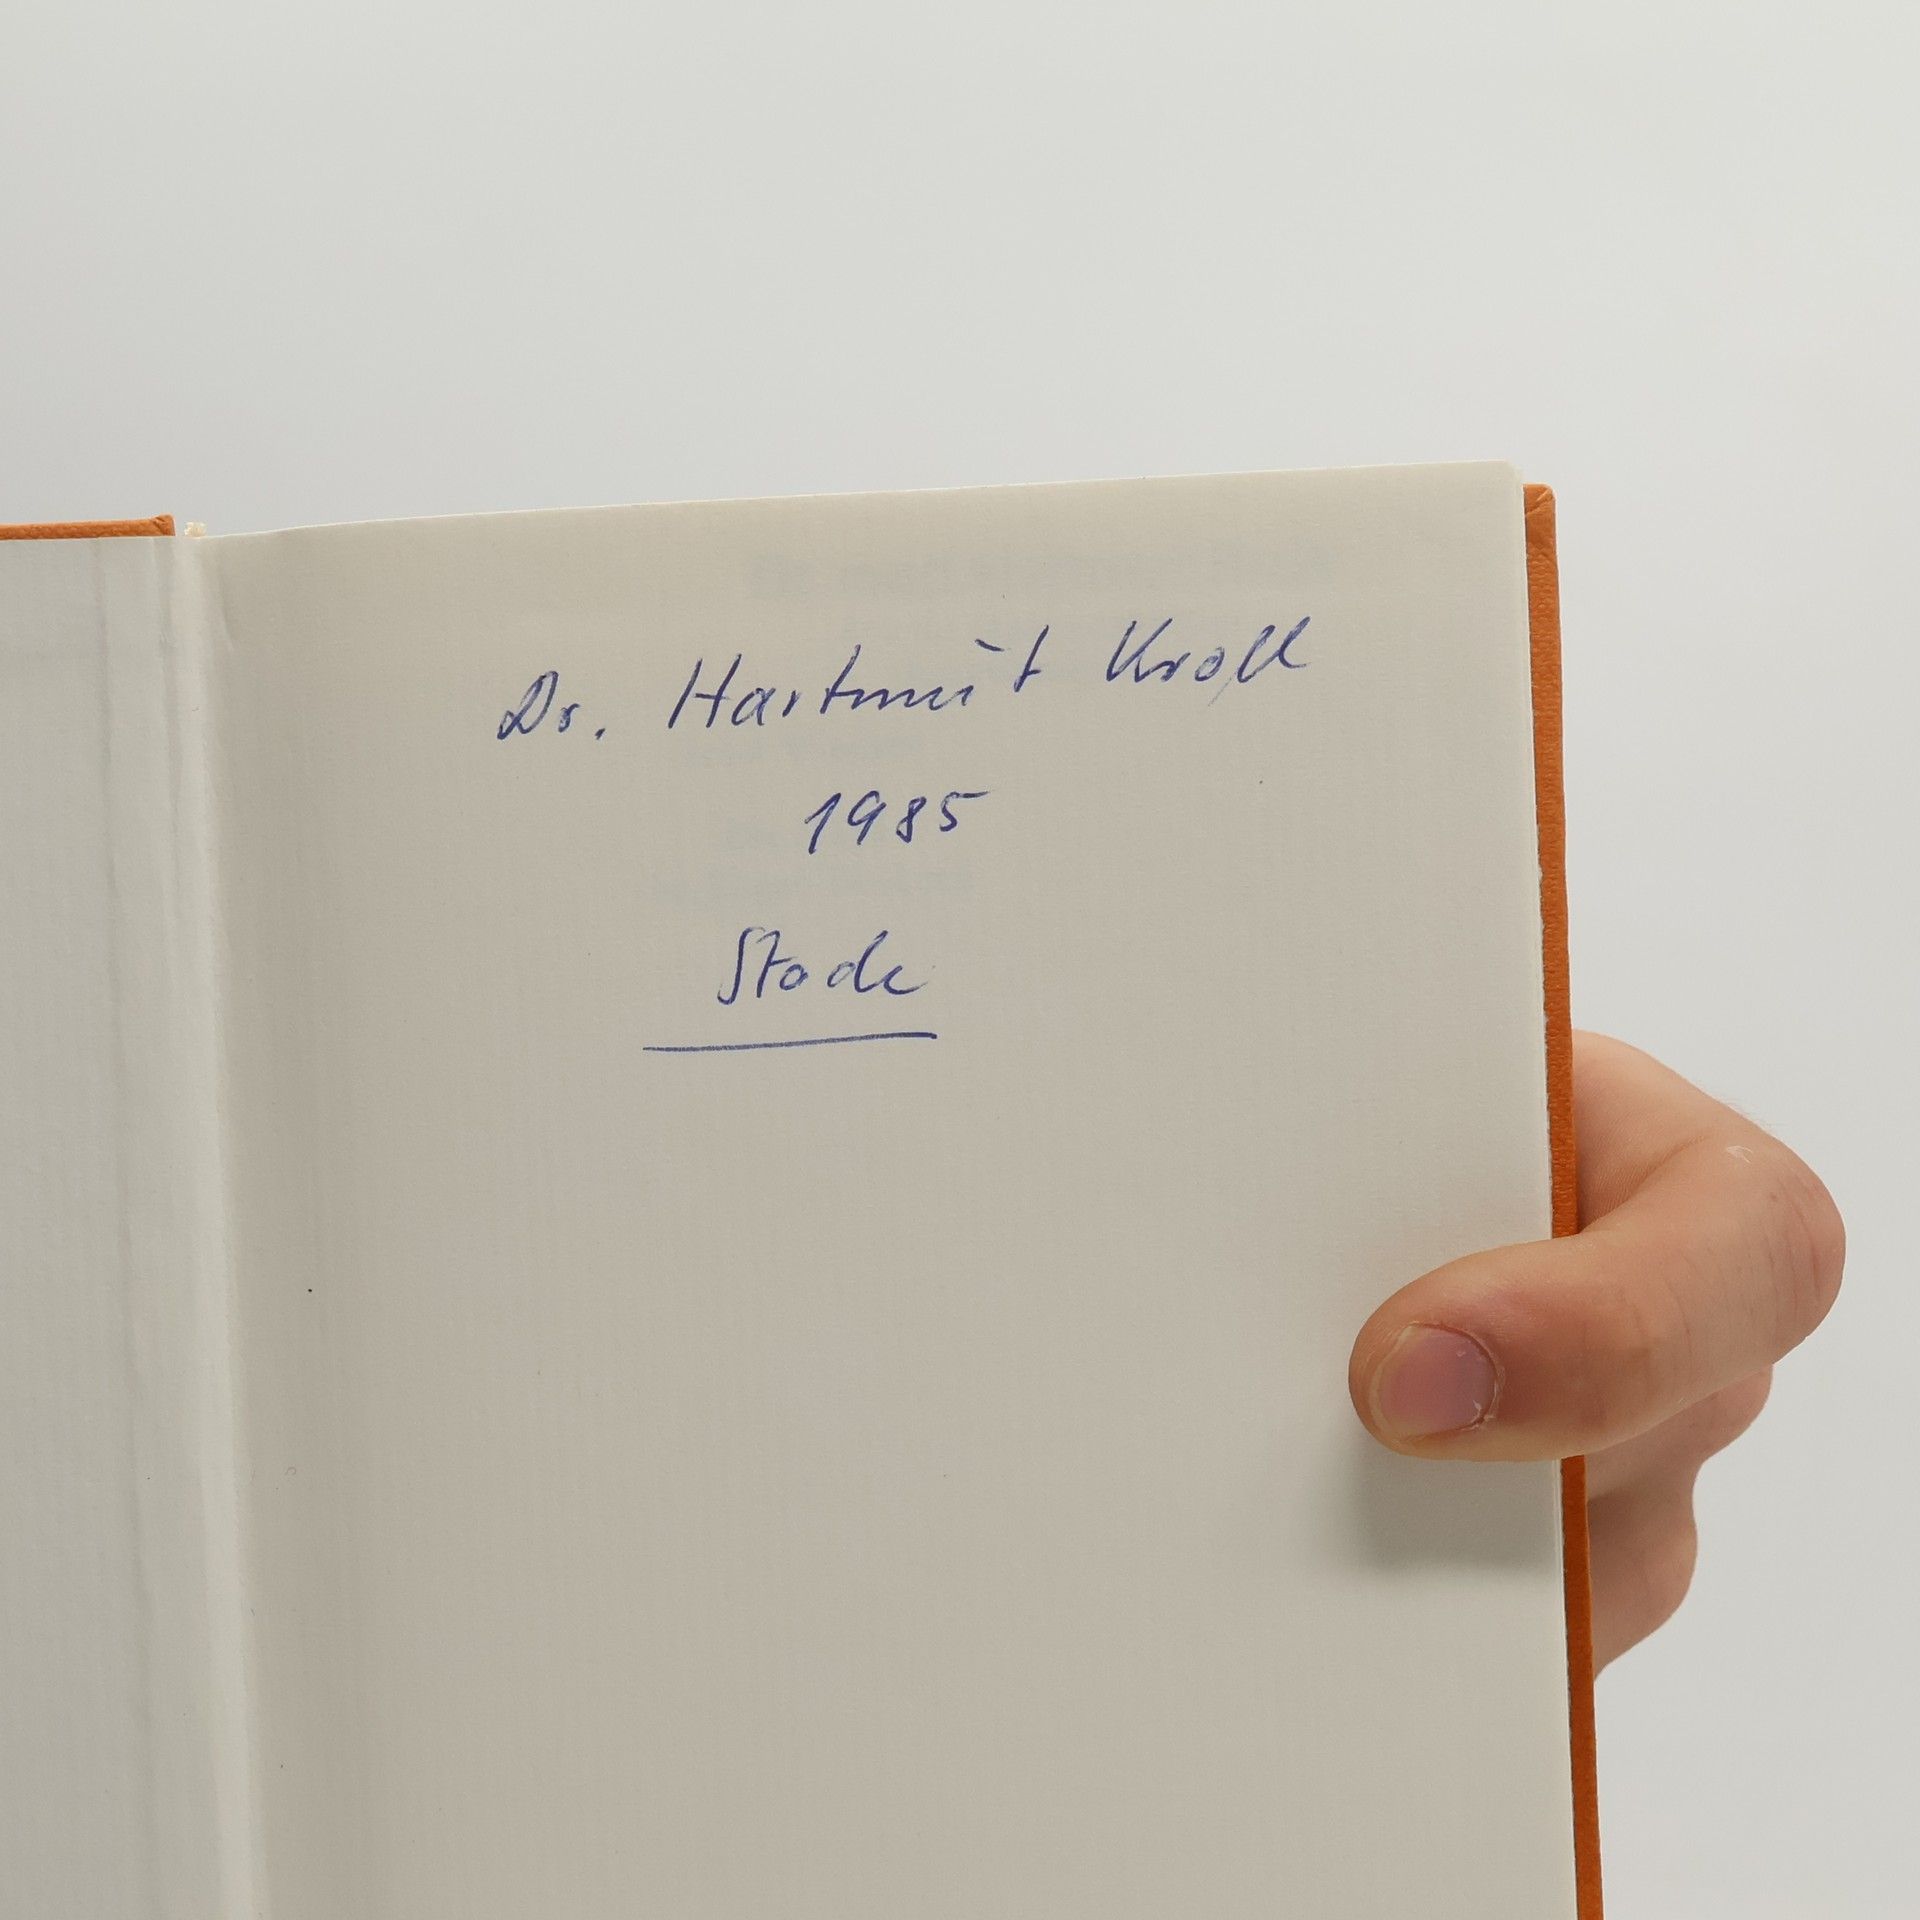 Dr. Hartmut Kroll
1985
Stade